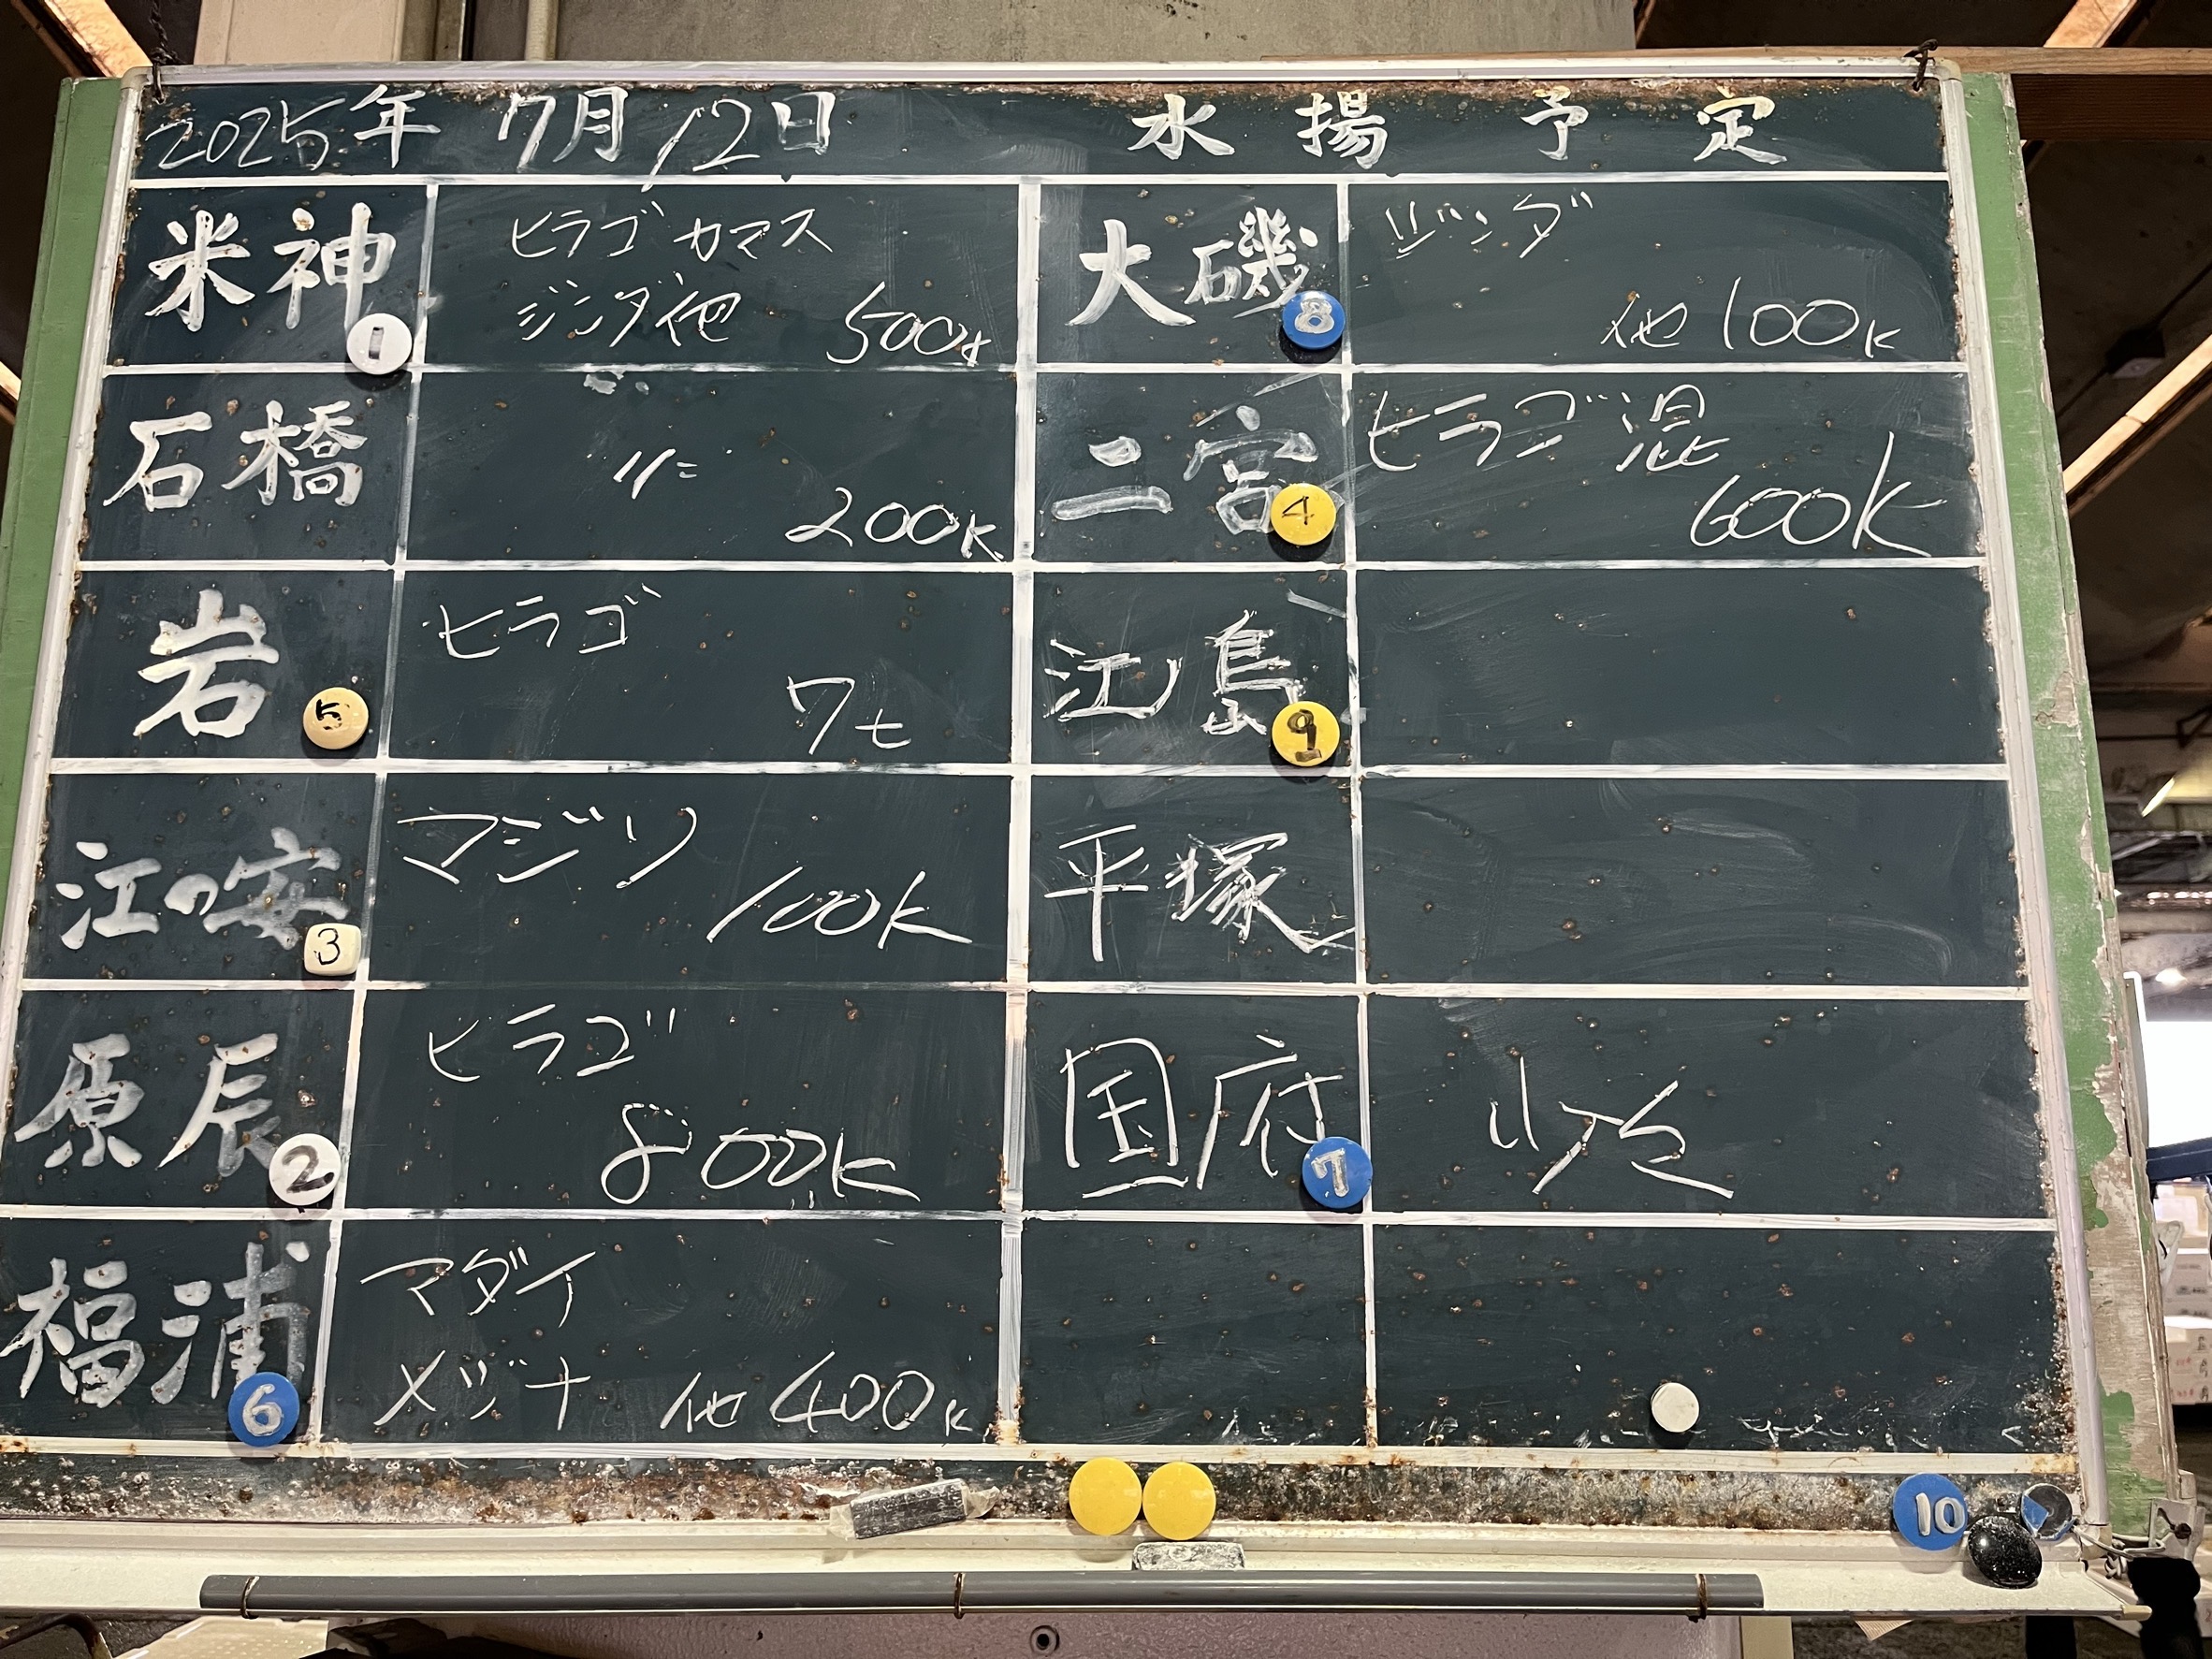 2025年 7月12日 水揚予定
米神 1
ヒラゴ カマス
ジンダ他 500K
石橋
〃
200K
岩 5
ヒラゴ
7t
江の安 3
マジリ
100K
原辰 2
ヒラゴ
800K
福浦 6
マダイ
メジナ 他 400K
大磯 8
ジンダ
他 100K
二宮 4
ヒラゴ混
600K
江ノ島 9
平塚
国府 7
少々
10